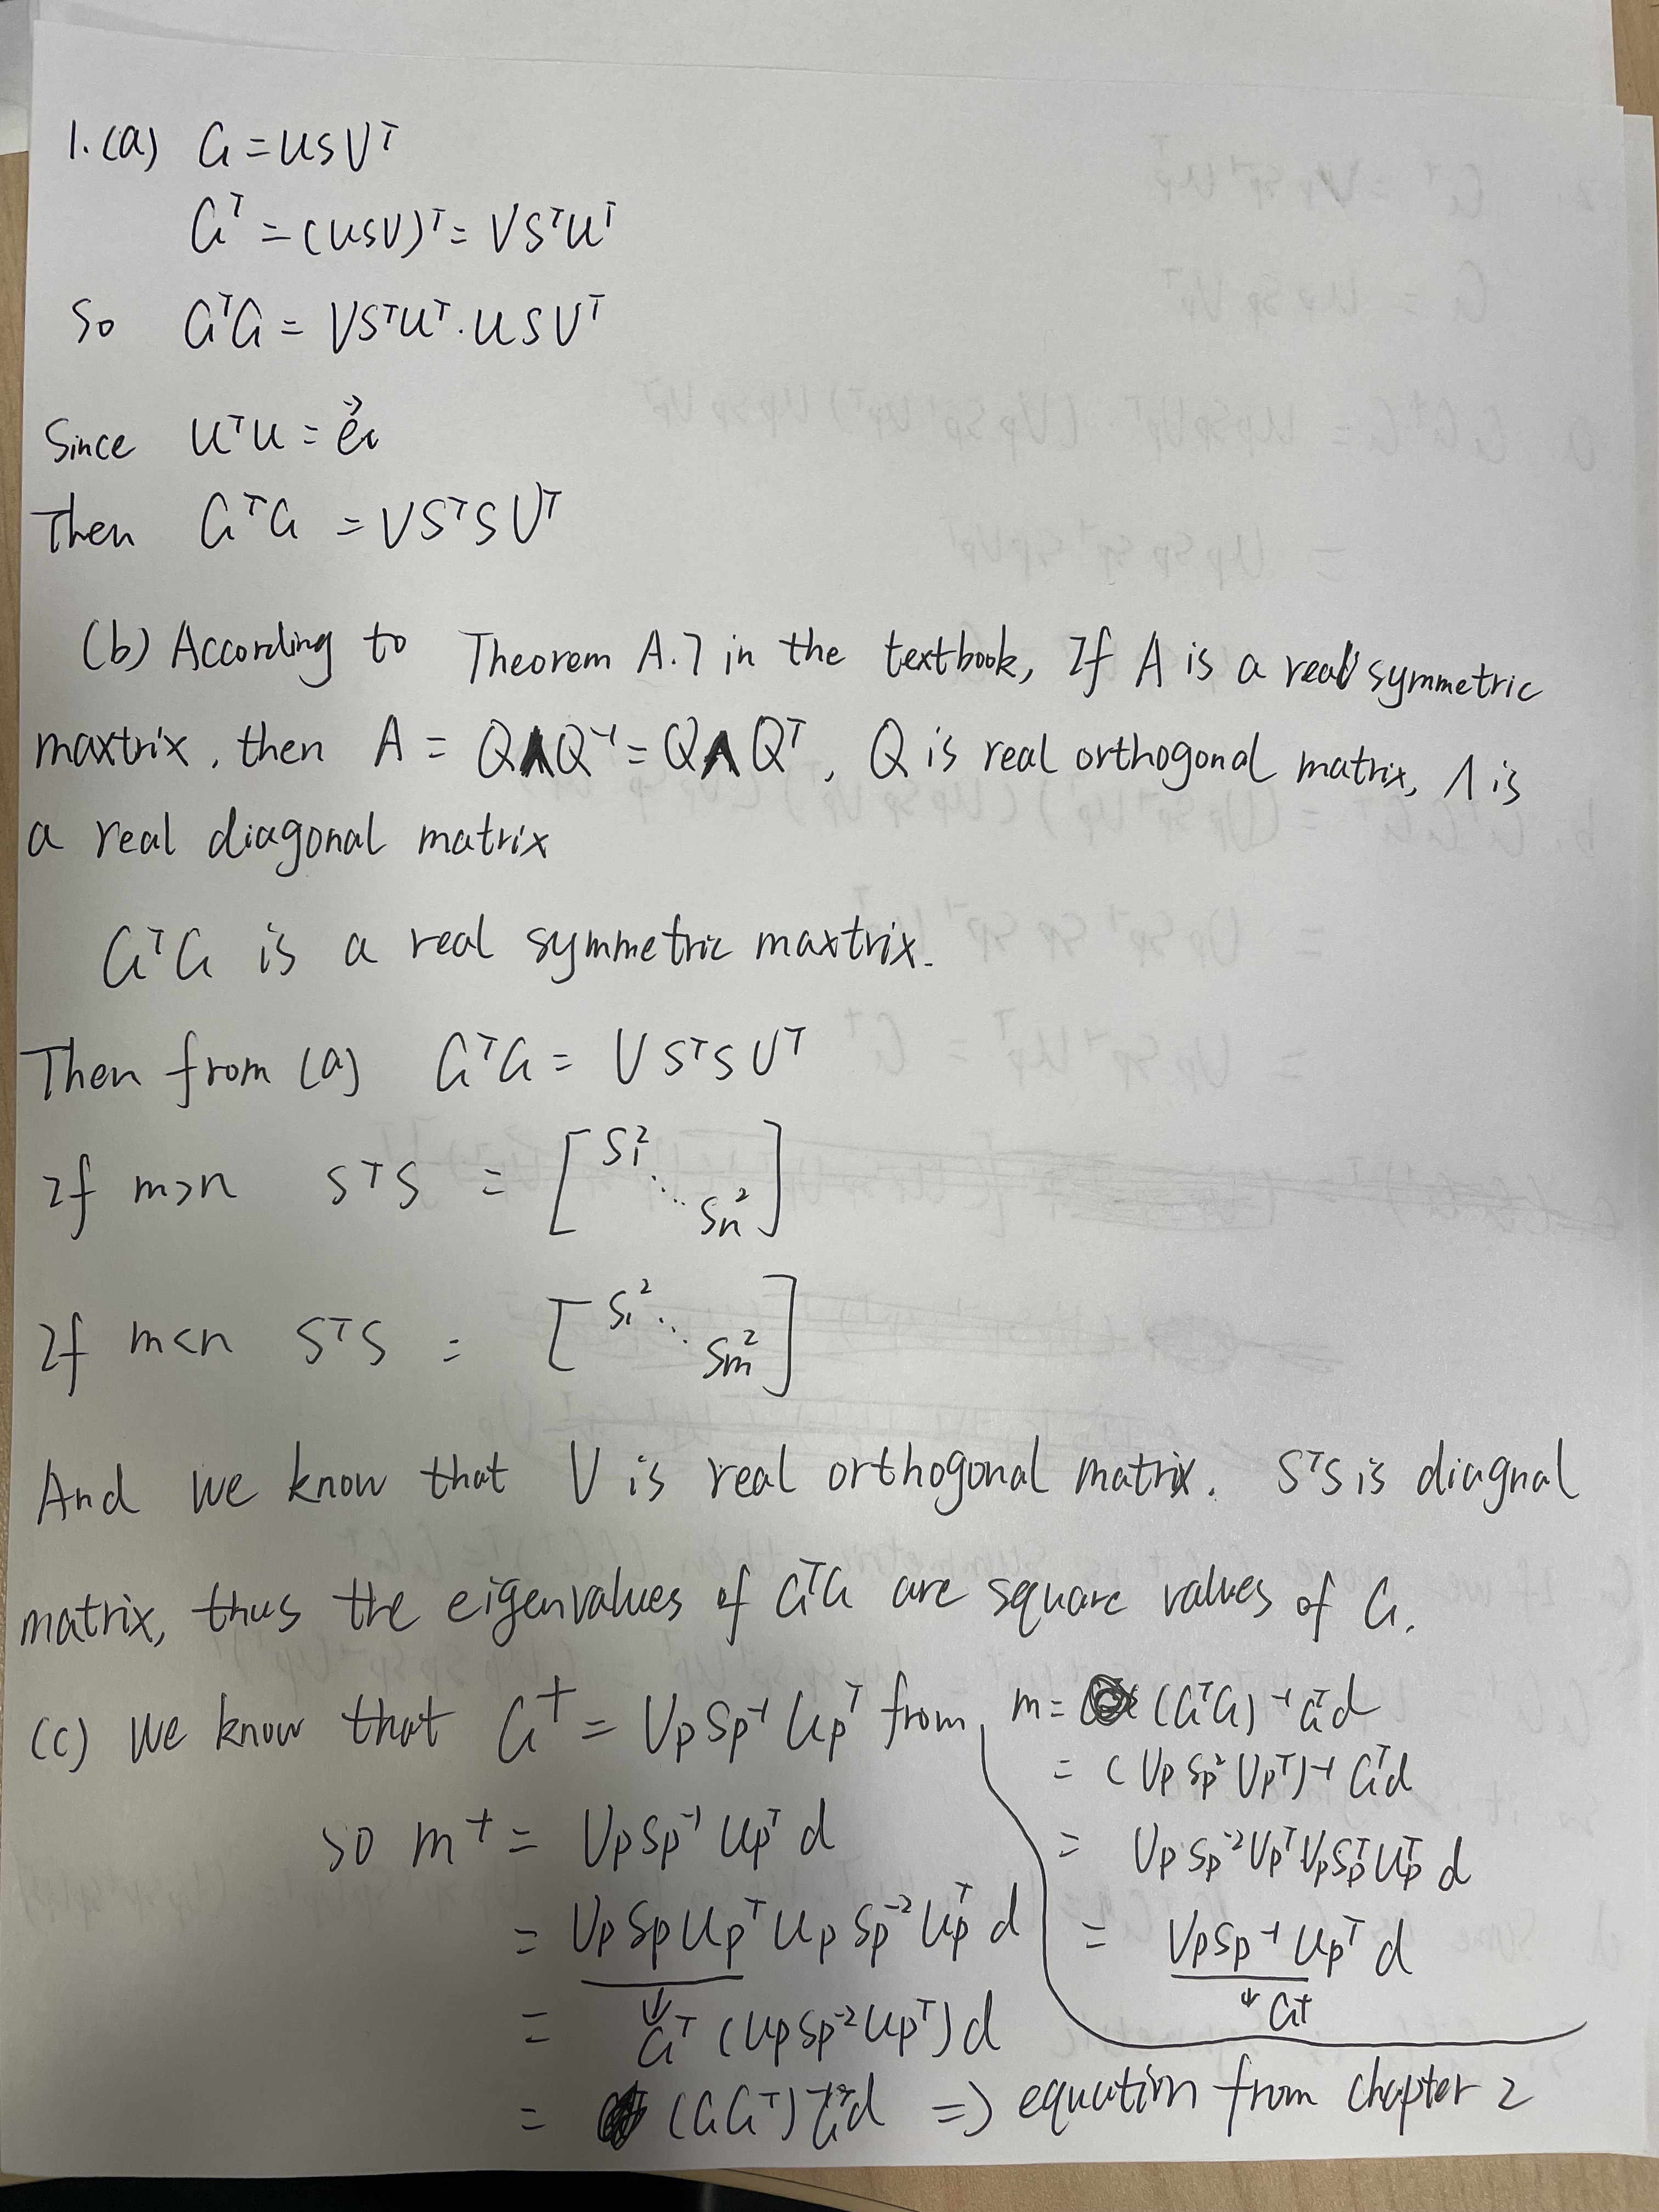 1.(a) G = USV^T
G^T = (USV)^T = VS^TU^T
So G^TG = VS^TU^T · USV^T
Since U^TU = e⃗i
Then G^TG = VS^TSV^T
(b) According to Theorem A.7 in the textbook, If A is a real symmetric
maxtrix, then A = QΛQ^-1 = QΛQ^T, Q is real orthogonal matrix, Λ is
a real diagonal matrix
G^TG is a real symmetric maxtrix.
Then from (a) G^TG = VS^TSV^T
If m>n S^TS = [S1^2 ⋱ Sn^2]
If m<n S^TS = [S1^2 ⋱ Sm^2]
And we know that V is real orthogonal matrix. S^TS is diagnal
matrix, thus the eigenvalues of G^TG are square values of G.
(c) We know that G^† = VpSp^-1Up^T from
m = (G^TG)^-1G^Td
= (VpSp^2Vp^T)^-1G^Td
= VpSp^-2Vp^TVpSp^TUp^Td
= VpSp^-1Up^Td
↓ G†
so m^† = VpSp^-1Up^Td
= VpSpUp^TUpSp^-2Up^Td
↓
= G^T(UpSp^-2Up^T)d
= (GG^T)^-1G^Td => equation from chapter 2